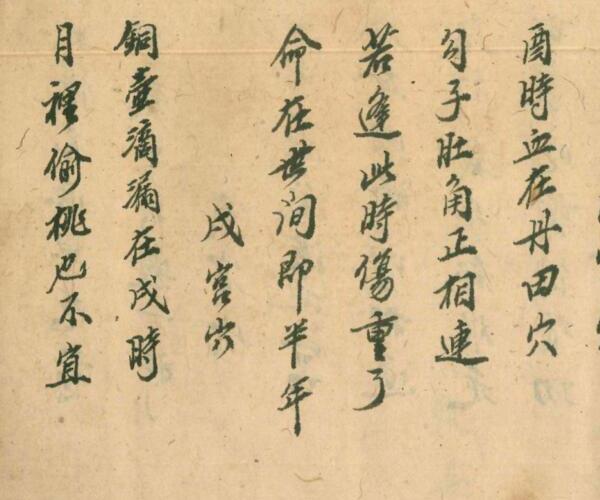 酉時血在丹田穴
勾子肚角正相連
若逢此時傷重了
命在世间即半年
戌宮穴
銅壺滴漏在戌時
月裡偷桃也不宜